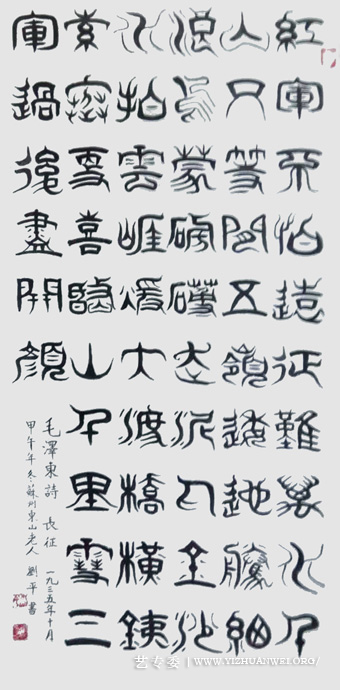 紅軍不怕遠征難萬水千
山只等閒五嶺逶迤騰細
浪烏蒙磅礴走泥丸金沙
水拍雲崖煖大渡橋橫銕
索寒更喜岷山千里雪三
軍過後盡開顏
毛澤東詩 長征 一九三五年十月
甲午年冬蘇州東山老人 劉平書
艺专委 | WWW.YIZHUANWEI.ORG/